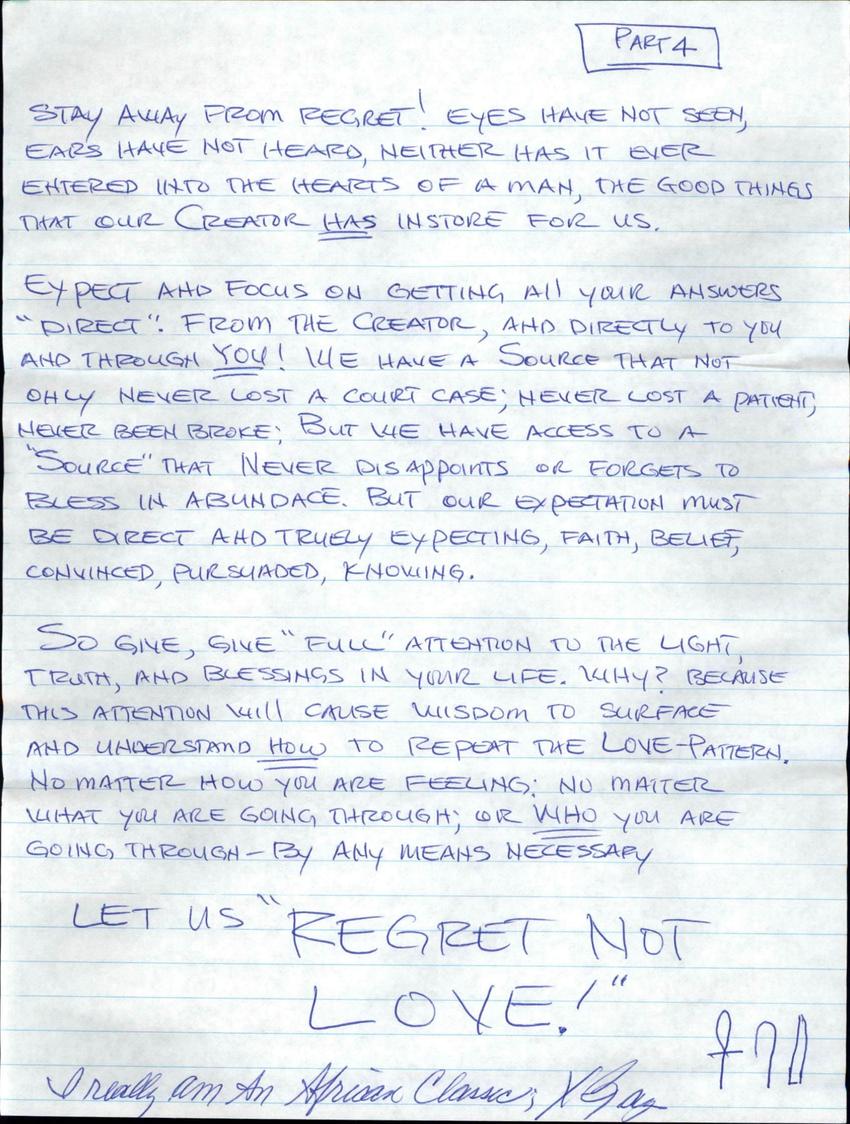 PART 4
STAY AWAY FROM REGRET! EYES HAVE NOT SEEN,
EARS HAVE NOT HEARD, NEITHER HAS IT EVER
ENTERED INTO THE HEARTS OF A MAN, THE GOOD THINGS
THAT OUR CREATOR HAS INSTORE FOR US.
EXPECT AND FOCUS ON GETTING All YOUR ANSWERS
"DIRECT". FROM THE CREATOR, AND DIRECTLY TO YOU
AND THROUGH YOU! WE HAVE A SOURCE THAT NOT
ONLY NEVER LOST A COURT CASE; NEVER LOST A PATIENT,
NEVER BEEN BROKE; BUT WE HAVE ACCESS TO A
"SOURCE" THAT NEVER DISAPPOINTS OR FORGETS TO
BLESS IN ABUNDACE. BUT OUR EXPECTATION MUST
BE DIRECT AND TRUELY EXPECTING, FAITH, BELIEF,
CONVINCED, PURSUADED, KNOWING.
SO GIVE, GIVE "FULL" ATTENTION TO THE LIGHT,
TRUTH, AND BLESSINGS IN YOUR LIFE. WHY? BECAUSE
THIS ATTENTION WIll CAUSE WISDOM TO SURFACE
AND UNDERSTAND HOW TO REPEAT THE LOVE-PATTERN.
NO MATTER HOW YOU ARE FEELING; NO MATTER
WHAT YOU ARE GOING THROUGH; OR WHO YOU ARE
GOING THROUGH - BY ANY MEANS NECESSARY
LET US "REGRET NOT
LOVE!"
I really am An African Classic;